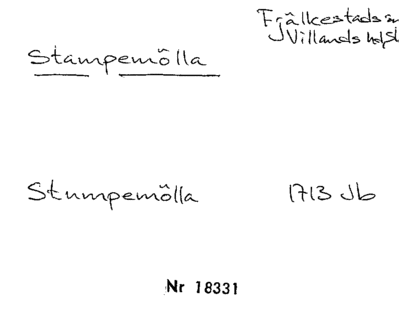 Fjälkestads sn
Villands hd, Sk
Stampemölla
Stumpemölla 1713 Jb
Nr 18331